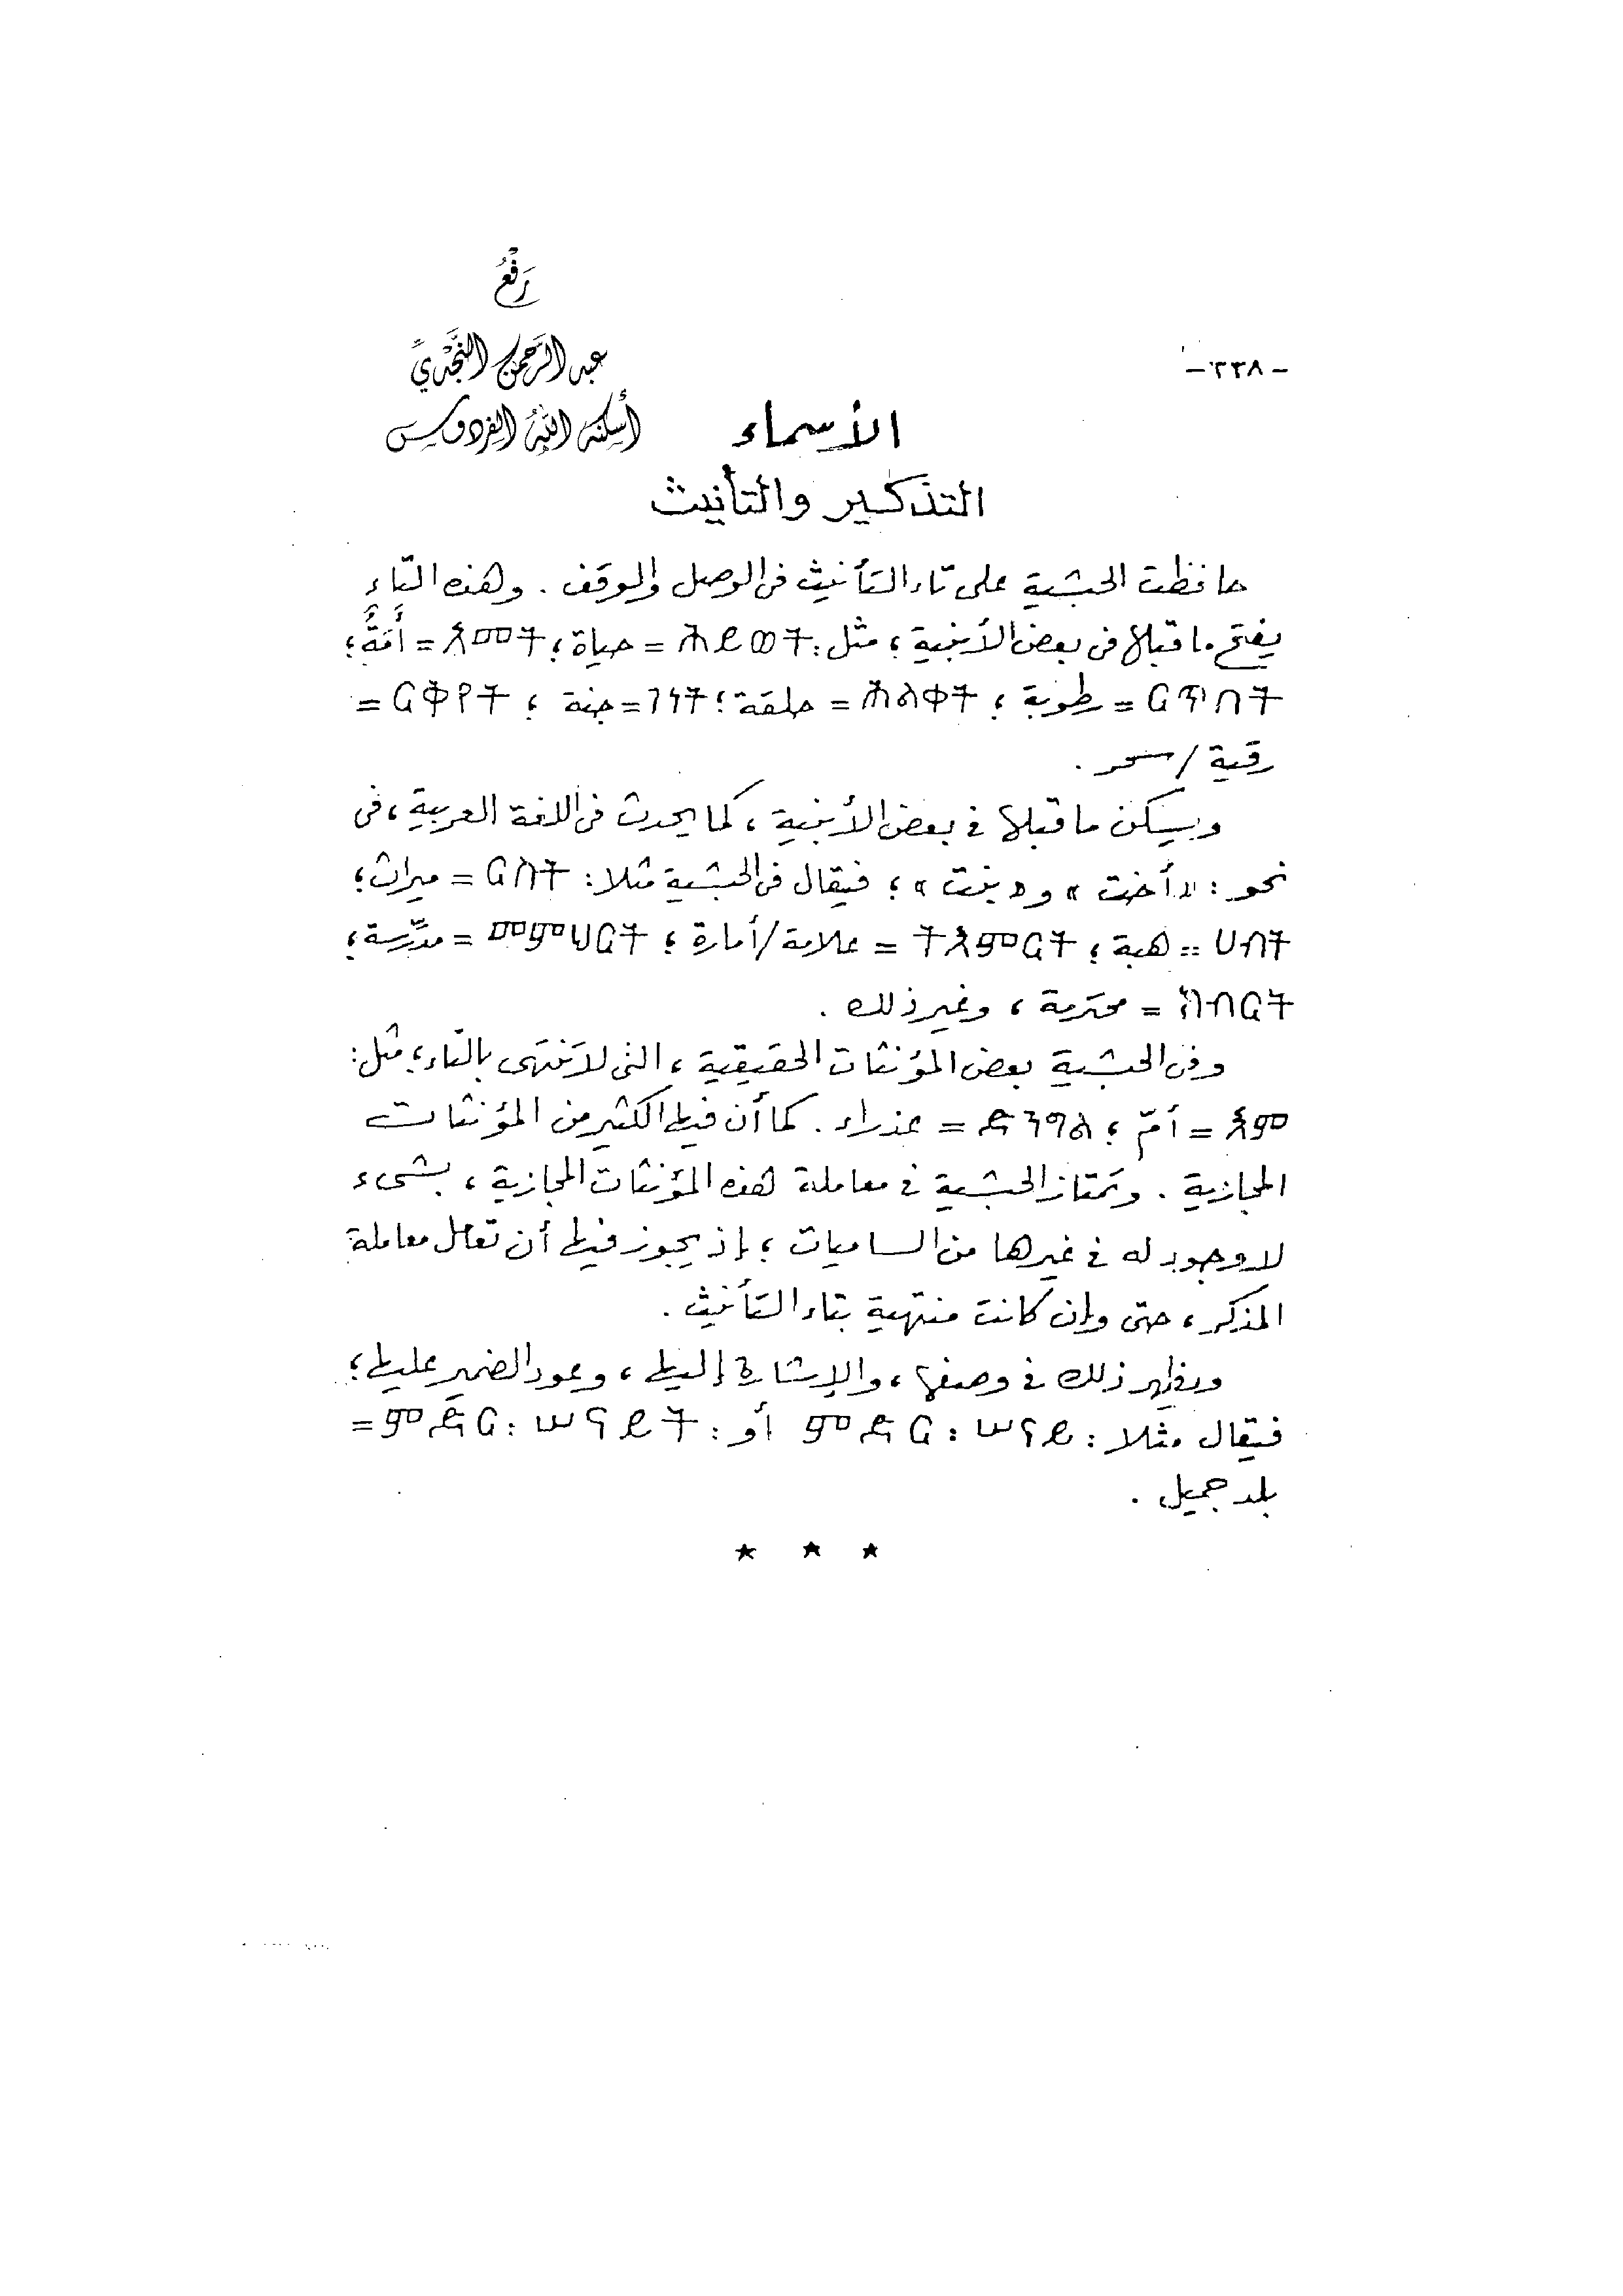 رَفْعُ
عبد الرَّحمن النَّجْدِيِّ
- ٢٣٨ -
أسكنه اللهُ الفردوس
الأسماء
التذكير والتأنيث
حافظت الحبشية على تاء التأنيث فى الوصل والوقف . وهذه التاء
يفتح ما قبلها فى بعض الأبنية ؛ مثل : ሕይወት = حياة ؛ አመት = أَمَةٌ ؛
ርጥበት = رطوبة ؛ ሕለቀት = حلقة ؛ ገነት = جنة ؛ ርቀየት =
رقية / سحر .
ويسكن ما قبلها فى بعض الأبنية ، كما يحدث فى اللغة العربية ، فى
نحو : « أخت » و « بنت » ؛ فيقال فى الحبشية مثلا : ርስት = ميراث ؛
ሀብት = هبة ؛ ትእምርት = علامة / أمارة ؛ መምህርት = مدّرسة ؛
ክብርት = محترمة ، وغير ذلك .
وفى الحبشية بعض المؤنثات الحقيقية ، التى لا تنتهى بالتاء ؛ مثل :
እም = أمّ ؛ ድንግል = عذراء . كما أن فيها الكثير من المؤنثات
المجازية . وتمتاز الحبشية فى معاملة هذه المؤنثات المجازية ، بشىء
لا وجود له فى غيرها من الساميات ؛ إذ يجوز فيها أن تعامل معاملة
المذكر ، حتى وإن كانت منتهية بتاء التأنيث .
ويظهر ذلك فى وصفها ، والإشارة إليها ، وعود الضمير عليها ؛
فيقال مثلا : ምድር : ሠናይ أو : ምድር : ሠናይት =
بلد جميل .
* * *